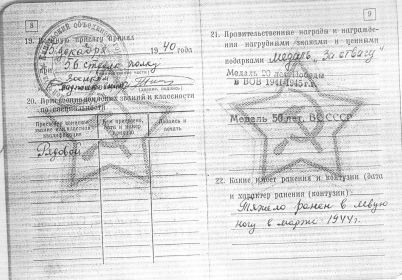 8
19. Военную присягу принял
15 декабря 1940 года
при 56 стрелк. полку
20. Присвоение воинских званий и классности
по специальности
Присвоено воинское
звание или классная
квалификация
Кем присвоено,
дата и номер
приказа
Подпись и
печать
Рядовой
9
21. Правительственные награды и награжде-
ния нагрудными знаками и ценными
подарками Медаль "За отвагу"
Медаль 20 лет Победы
в ВОВ 1941-1945 г.г.
Медаль 50 лет ВС СССР
22. Какие имеет ранения и контузии (дата
и характер ранения (контузии)
Тяжело ранен в левую
ногу в марте 1944 г.